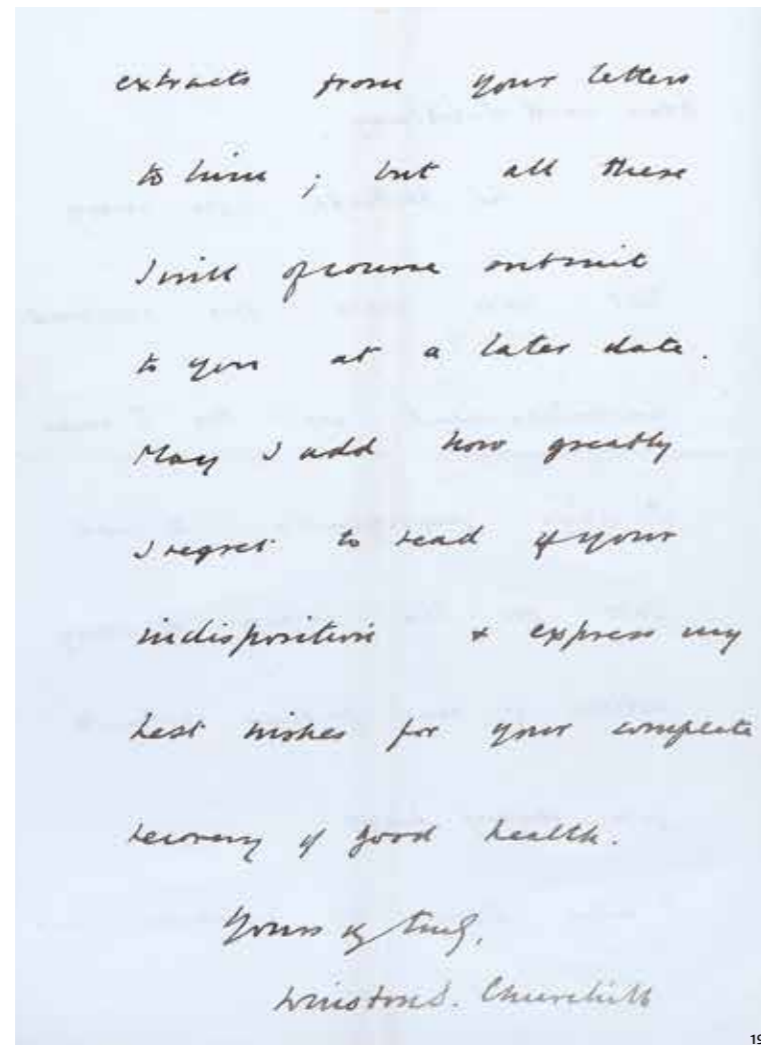 extracts from your letters
to him ; but all these
I will of course submit
to you at a later date.
May I add how greatly
I regret to read of your
indisposition & express my
best wishes for your complete
recovery of good health.
Yours vy truly,
Winston S. Churchill
19